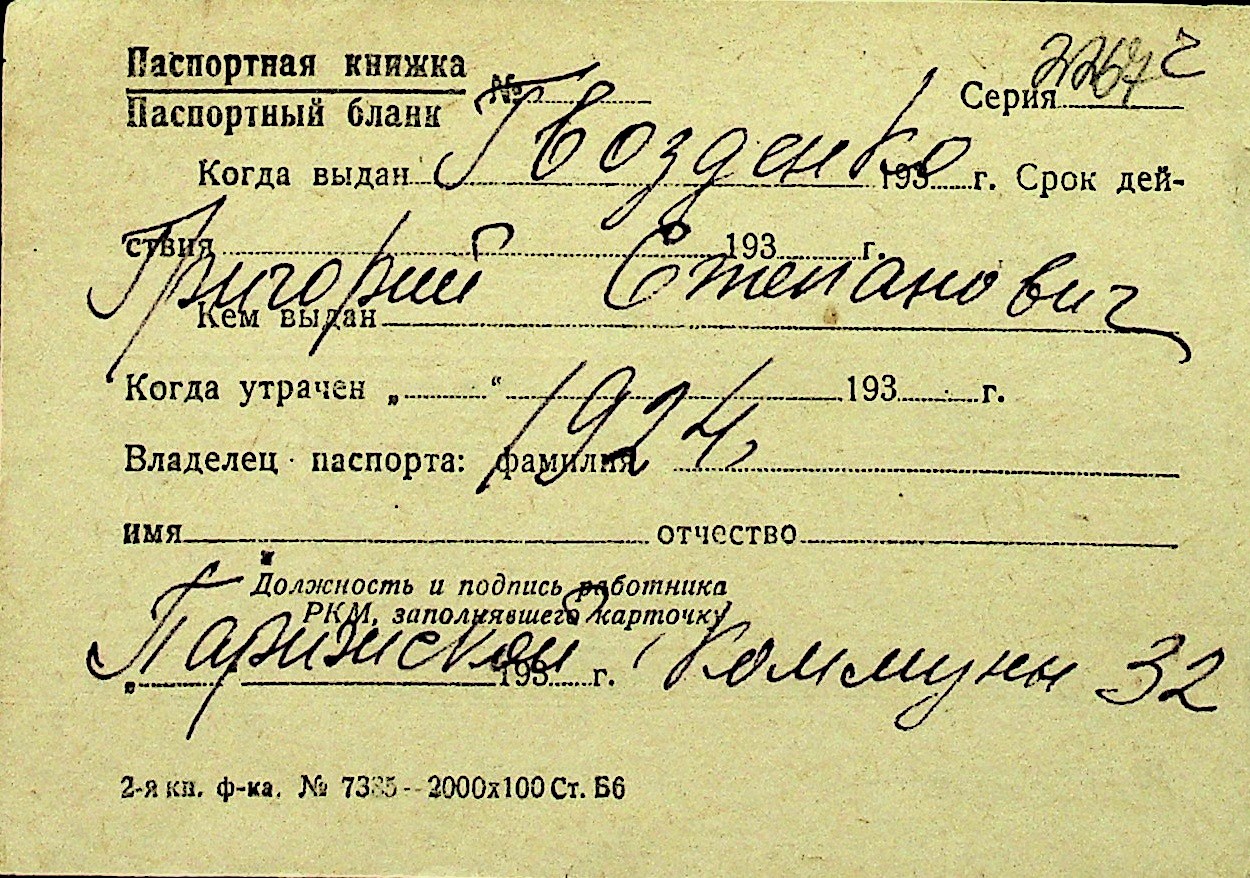 Паспортная книжка
Паспортный бланк
№
Серия
Гвозденко
Когда выдан 193 г. Срок дей-
ствия 193 г.
Григорий Степанович
Кем выдан
Когда утрачен „ “ 193 г.
1924
Владелец паспорта: фамилия
имя отчество
Должность и подпись работника
РКМ, заполнявшего карточку
Парижской Коммуны 32
„ 193 г.
2-я кн. ф-ка. № 2000х100 Ст. Б6